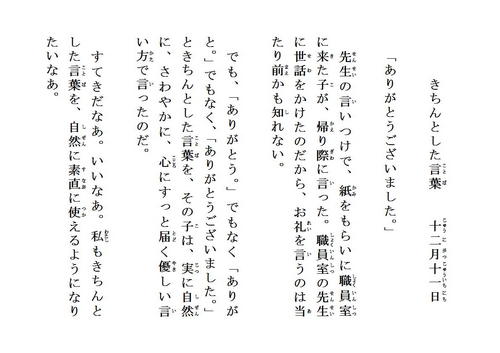 きちんとした言葉　十二月十一日
「ありがとうございました。」
先生の言いつけで、紙をもらいに職員室
に来た子が、帰り際に言った。職員室の先生
に世話をかけたのだから、お礼を言うのは当
たり前かも知れない。
でも、「ありがとう。」でもなく「ありが
と。」でもなく、「ありがとうございました。」
ときちんとした言葉を、その子は、実に自然
に、さわやかに、心にすっと届く優しい言
い方で言ったのだ。
すてきだなあ。いいなあ。私もきちんと
した言葉を、自然に素直に使えるようになり
たいなあ。